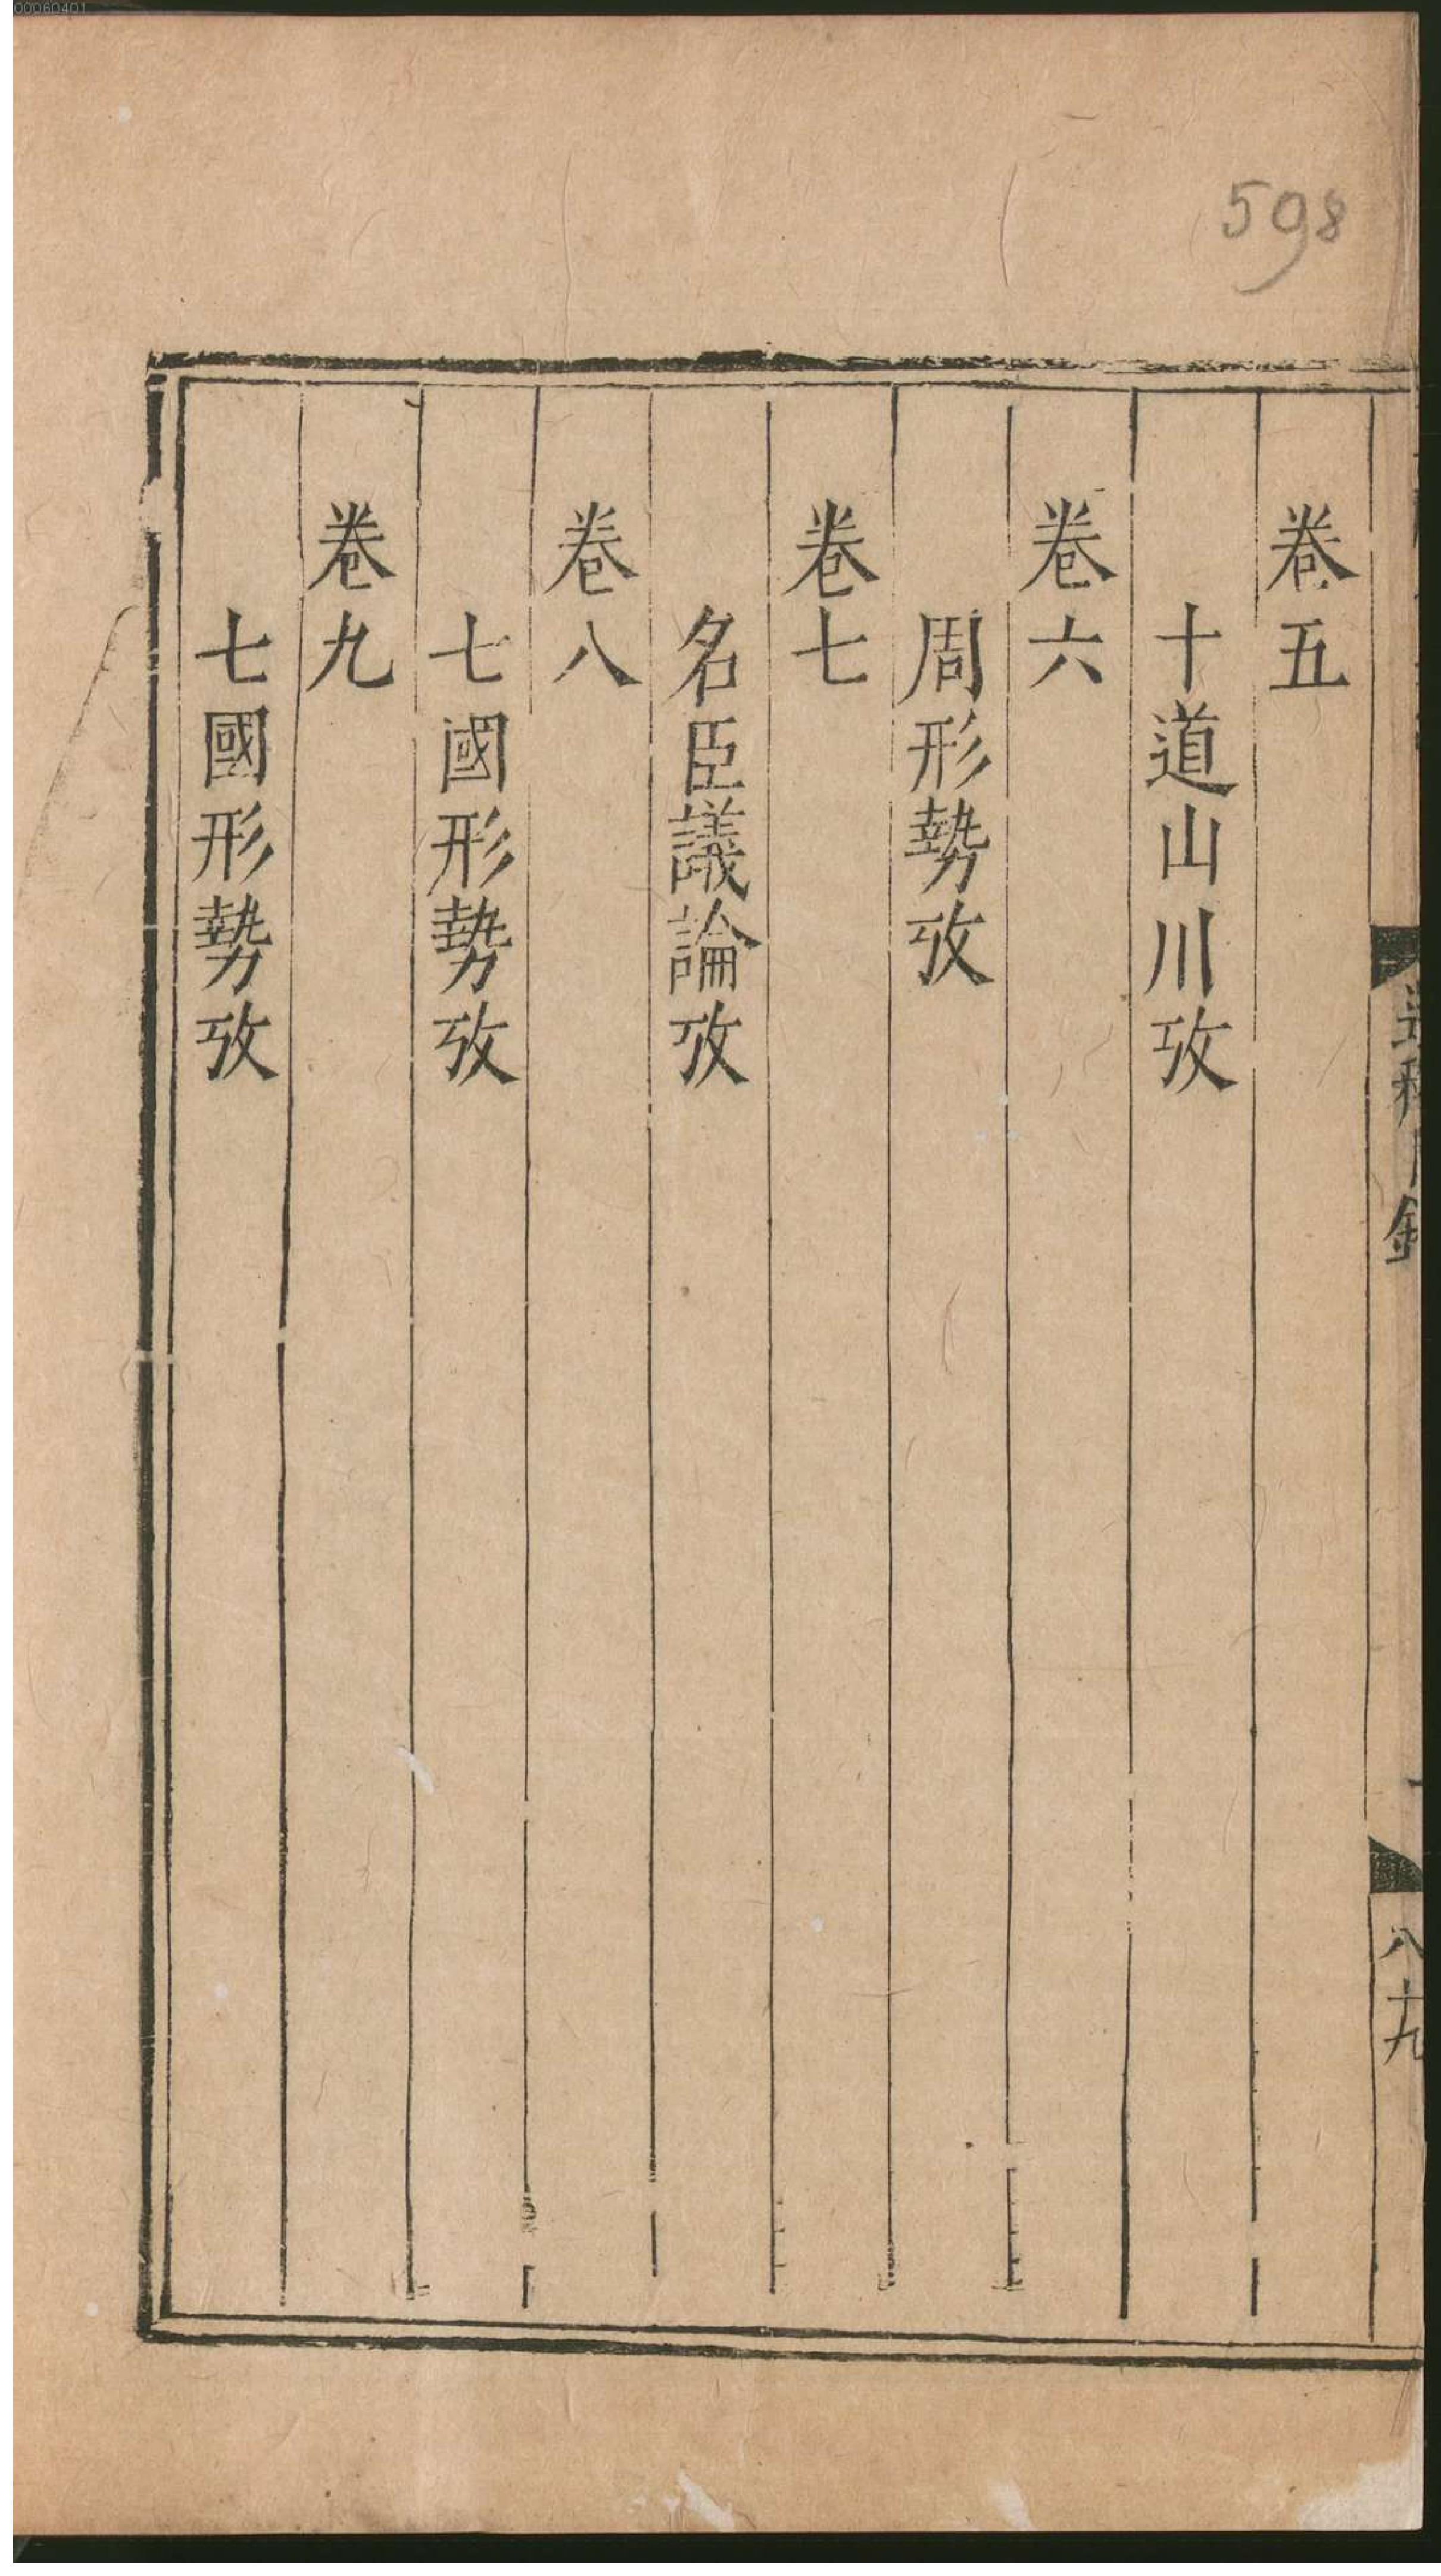 00080401
598
卷五
十道山川攷
卷六
周形勢攷
卷七
名臣議論攷
卷八
七國形勢攷
卷九
七國形勢攷